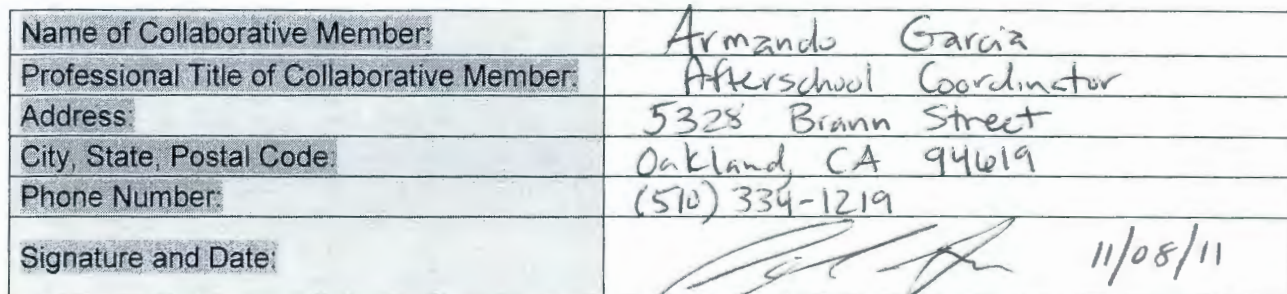 Name of Collaborative Member: Armando Garcia
Professional Title of Collaborative Member: Afterschool Coordinator
Address: 5328 Brann Street
City, State, Postal Code: Oakland, CA 94619
Phone Number: (510) 334-1219
Signature and Date: 11/08/11